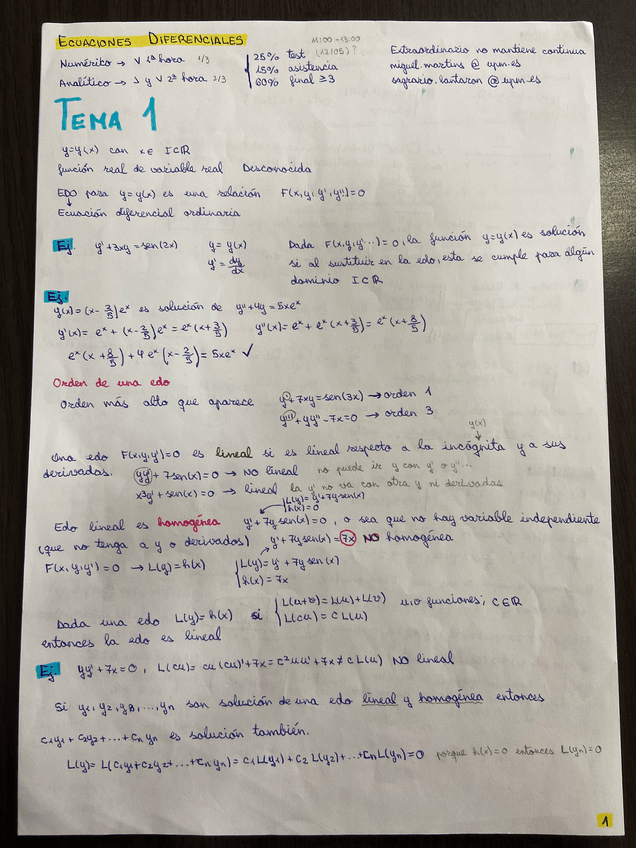 ECUACIONES DIFERENCIALES
11:00-13:00
(12/05)?
Numérico → V 1ª hora 1/3
Analítico → J y V 2ª hora 2/3
25% test
15% asistencia
60% final ≥3
Extraordinario no mantiene continua
miguel.martins @ upm.es
sagrario.lantaron @ upm.es
TEMA 1
y=y(x) con x∈ I⊂ℝ
función real de variable real Desconocida
EDO para y=y(x) es una relación F(x,y,y',y'')=0
↓
Ecuación diferencial ordinaria
Ej. y'+3xy=sen(2x) y=y(x)
y'=dy/dx
Dada F(x,y,y'...)=0, la función y=y(x) es solución
si al sustituir en la edo, esta se cumple para algún
dominio I⊂ℝ
Ej.
y(x)=(x-2/5)eˣ es solución de y''+4y=5xeˣ
y'(x)= eˣ+(x-2/5)eˣ=eˣ(x+3/5) y''(x)=eˣ+eˣ(x+3/5)=eˣ(x+8/5)
eˣ(x+8/5)+4eˣ(x-2/5)=5xeˣ ✓
Orden de una edo
Orden más alto que aparece y'+7xy=sen(3x) → orden 1
y'''+yy''-7x=0 → orden 3
y(x)
↓
Una edo F(x,y,y')=0 es lineal si es lineal respecto a la incógnita y a sus
derivadas. yy'+7sen(x)=0 → NO lineal no puede ir y con y' o y''...
x³y'+sen(x)=0 → lineal la y' no va con otra y ni derivadas
L(y)=y'+7ysen(x)
h(x)=0
Edo lineal es homogénea y'+7y sen(x)=0, o sea que no hay variable independiente
(que no tenga a y o derivados) y'+7ysen(x)=7x NO homogénea
F(x,y,y')=0 → L(y)=h(x) L(y)=y'+7y sen(x)
h(x)=7x
Dada una edo L(y)=h(x) si L(u+v)=L(u)+L(v) u,v funciones; c∈ℝ
L(cu)=cL(u)
entonces la edo es lineal
Ej yy'+7x=0, L(cu)=cu(cu)'+7x=c²uu'+7x≠cL(u) NO lineal
Si y₁,y₂,y₃,...,yn son solución de una edo lineal y homogénea entonces
c₁y₁+c₂y₂+...+cnyn es solución también.
L(y)=L(c₁y₁+c₂y₂+...+cnyn)=c₁L(y₁)+c₂L(y₂)+...+cnL(yn)=0 porque h(x)=0 entonces L(yn)=0
1